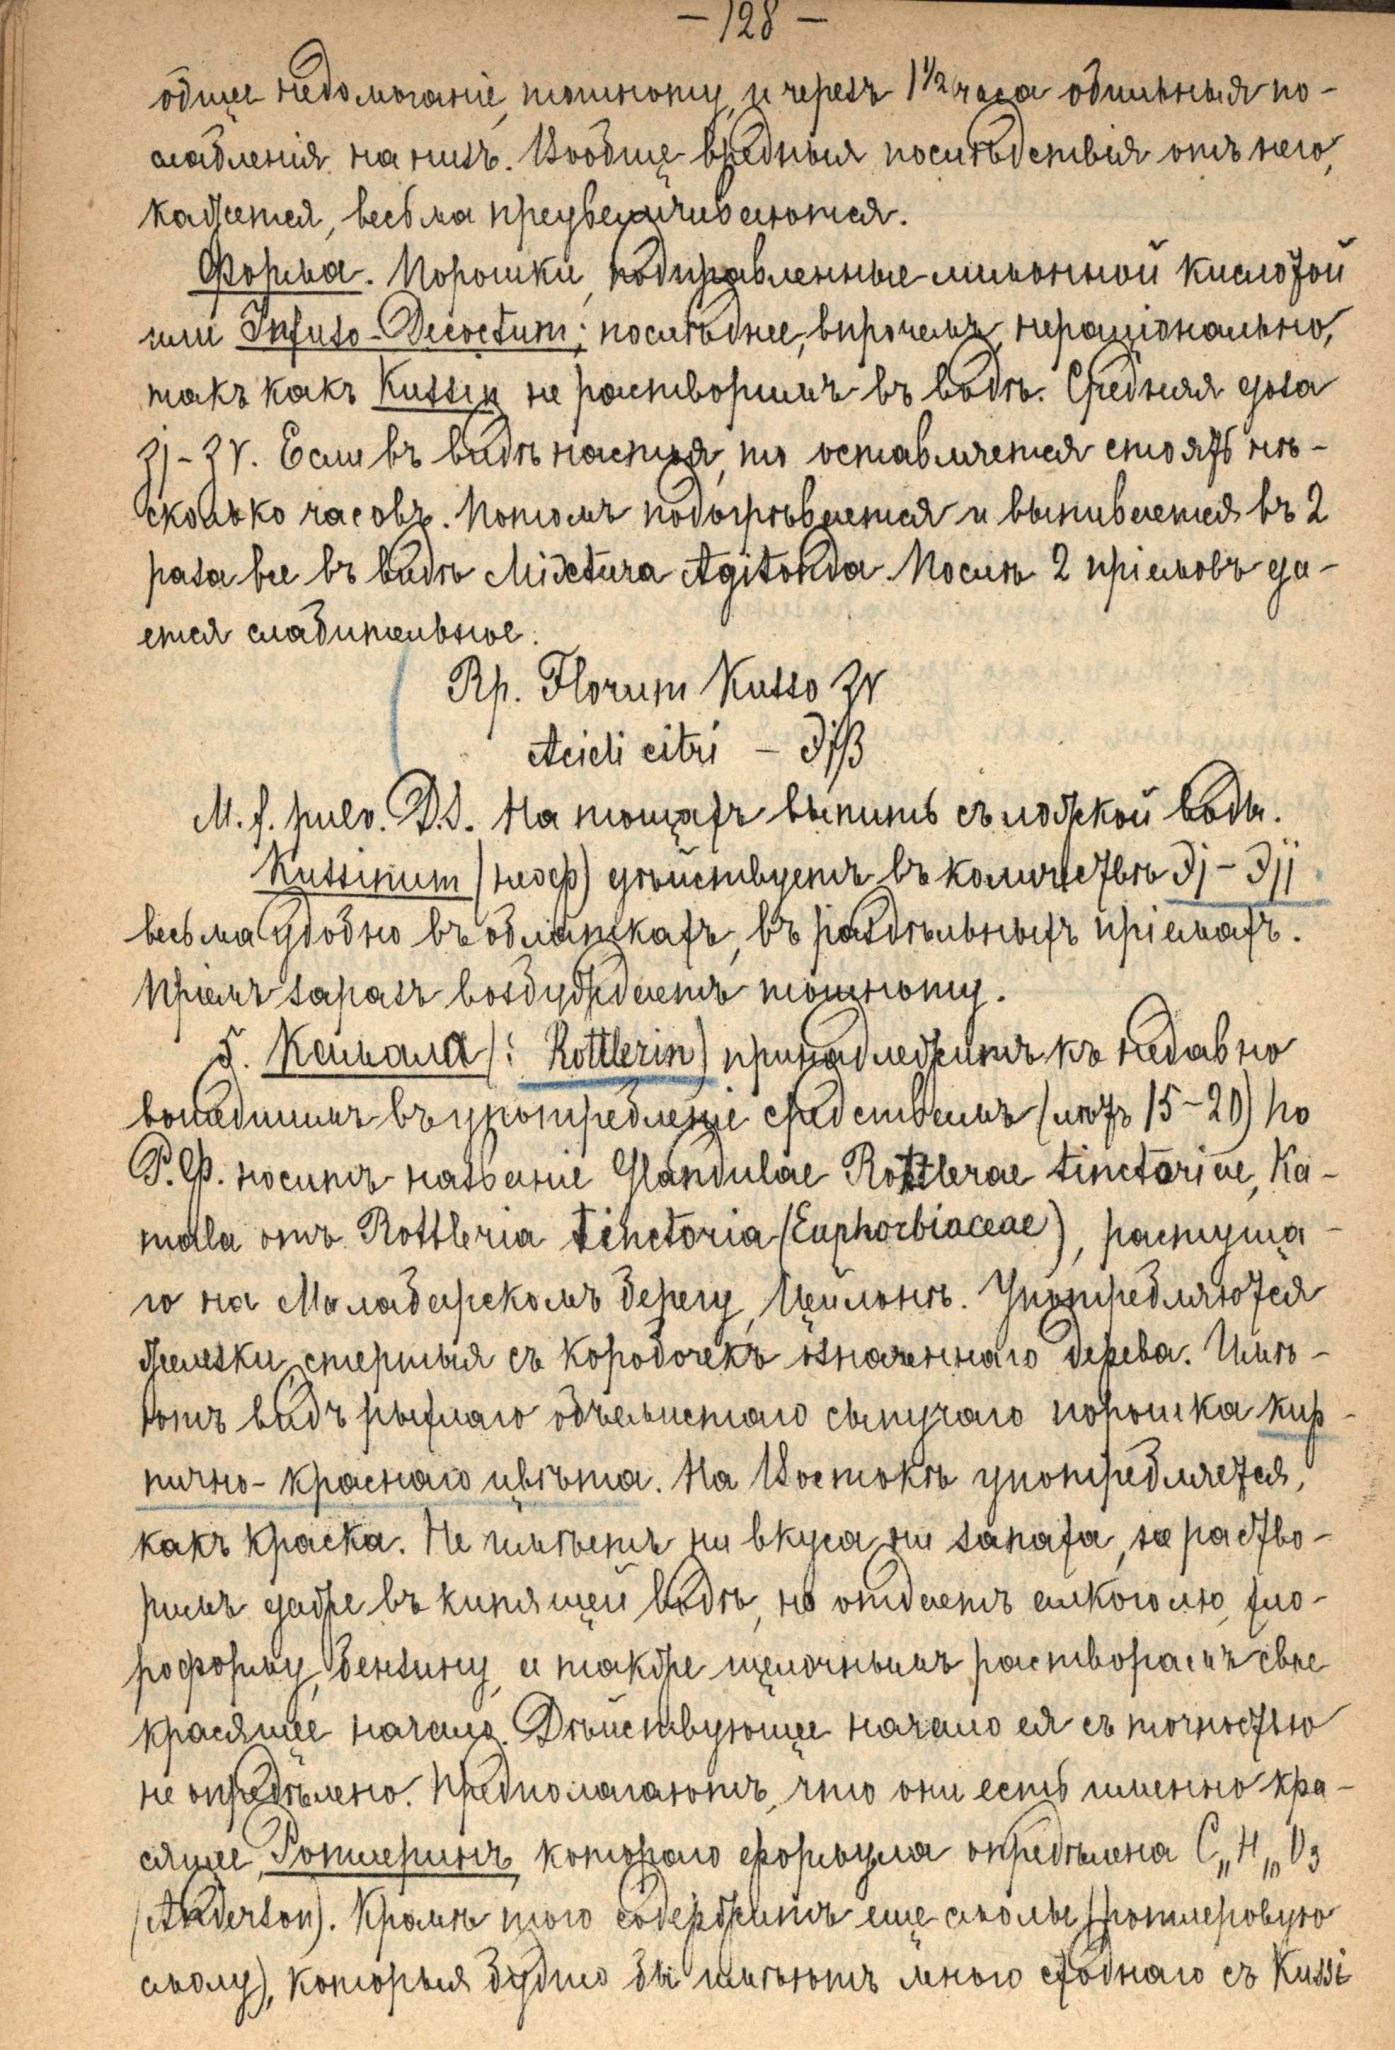 — 128 —
общее недомоганіе, тошноту, и черезъ 1 1/2 часа обильныя по-
слабленія на низъ. Вообще вредныя послѣдствія отъ него,
кажется, весьма преувеличиваются.
Форма. Порошки, подправленные лимонной кислотой
или Infuso-Decoctum; послѣднее, впрочемъ, нераціонально,
такъ какъ Kussin не растворимъ въ водѣ. Средняя доза
ʒj – ʒv. Если въ видѣ настоя, то оставляется стоять нѣ-
сколько часовъ. Потомъ подогрѣвается и выпивается въ 2
раза все въ видѣ Mixtura Agitanda. Послѣ 2 пріемовъ да-
ется слабительное.
Rp. Florum Kusso ʒv
Acidi citri — ℈jβ
M. f. pulv. D.S. На тощахъ выпить съ ложкой воды.
Kussinum (неоф) дѣйствуетъ въ количествѣ ℈j – ℈jj
весьма удобно въ облаткахъ, въ раздѣльныхъ пріемахъ.
Пріемъ заразъ возбуждаетъ тошноту.
5. Камала (: Rottlerin) принадлежитъ къ недавно
вошедшимъ въ употребленіе средствамъ (лѣтъ 15–20) по
Р.Ф. носитъ названіе Glandulae Rottlerae tinctoriae, Ka-
mala отъ Rottleria tinctoria (Euphorbiaceae), растуща-
го на Малабарскомъ берегу, Цейлонѣ. Употребляются
железки, стертыя съ коробочекъ означеннаго дерева. Имѣ-
ютъ видъ рыхлаго объемистаго сыпучаго порошка кир-
пично-краснаго цвѣта. На Востокѣ употребляется,
какъ краска. Не имѣетъ ни вкуса ни запаха, не раство-
римъ даже въ кипящей водѣ, но отдаетъ алкоголю, хло-
роформу, бензину, а также щелочнымъ растворамъ свое
красящее начало. Дѣйствующее начало ея съ точностью
не опредѣлено. Предполагаютъ, что они есть именно кра-
сящее, Ротлеринъ, котораго формула опредѣлена C₁₁H₁₀O₃
(Anderson). Кромѣ того содержитъ еще смолы (ротлеровую
смолу), которыя будто бы имѣютъ много сходнаго съ Kussi